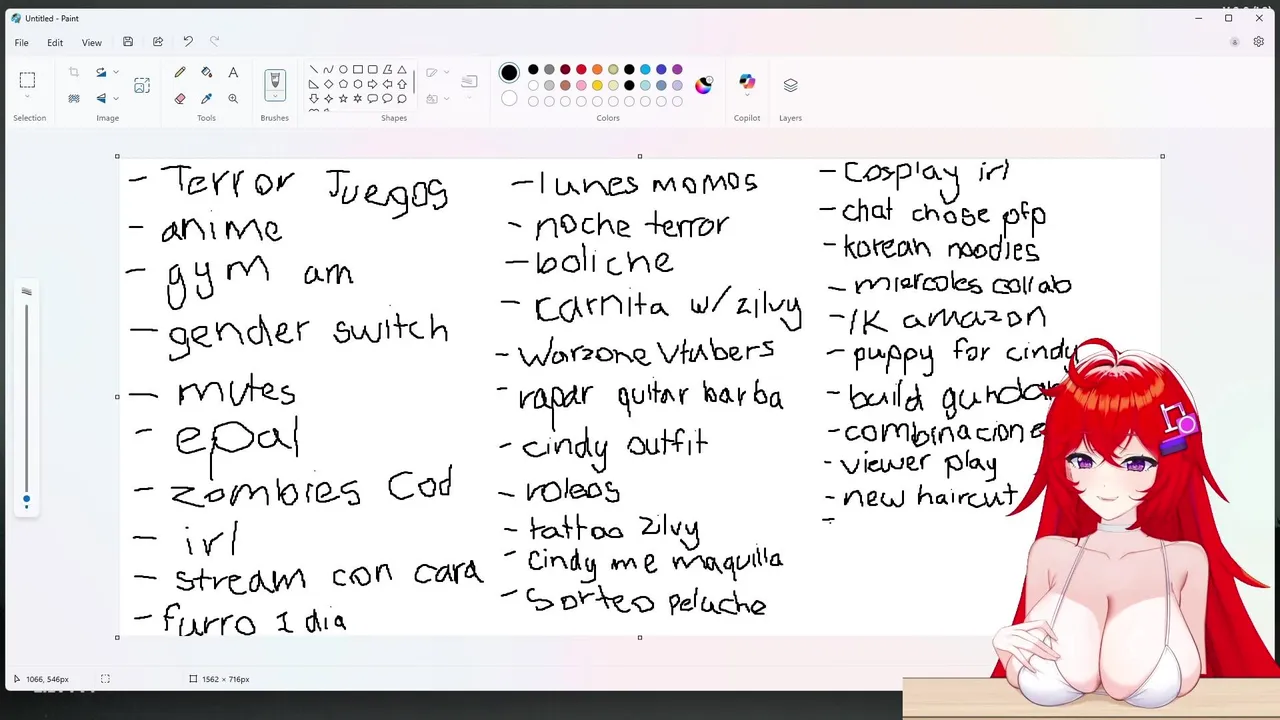 Untitled - Paint
File Edit View
Selection
Image
Tools
Brushes
Shapes
Colors
Copilot
Layers
- Terror Juegos
- anime
- gym am
- gender switch
- mutes
- epal
- zombies Cod
- irl
- stream con cara
- furro 1 dia
- lunes momos
- noche terror
- boliche
- Carnita w/ zilvy
- Warzone Vtubers
- rapar quitar barba
- cindy outfit
- roleos
- tattoo zilvy
- cindy me maquilla
- Sorteo peluche
- Cosplay irl
- chat chose pfp
- korean noodles
- miercoles collab
- 1K amazon
- puppy for cindy
- build gundam
- combinacione
- viewer play
- new haircut
-
1066, 546px
1562 × 716px